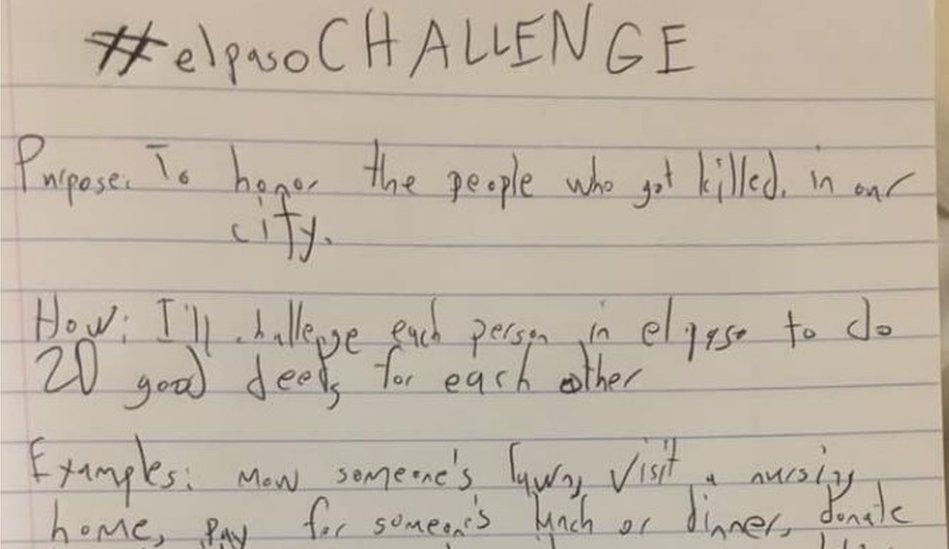 #elpasoCHALLENGE
Purpose: To honor the people who got killed. in our
city.
How: I'll challenge each person in el paso to do
20 good deeds for each other
Examples: Mow someone's lawn, visit a nursing
home, pay for someone's lunch or dinner, donate